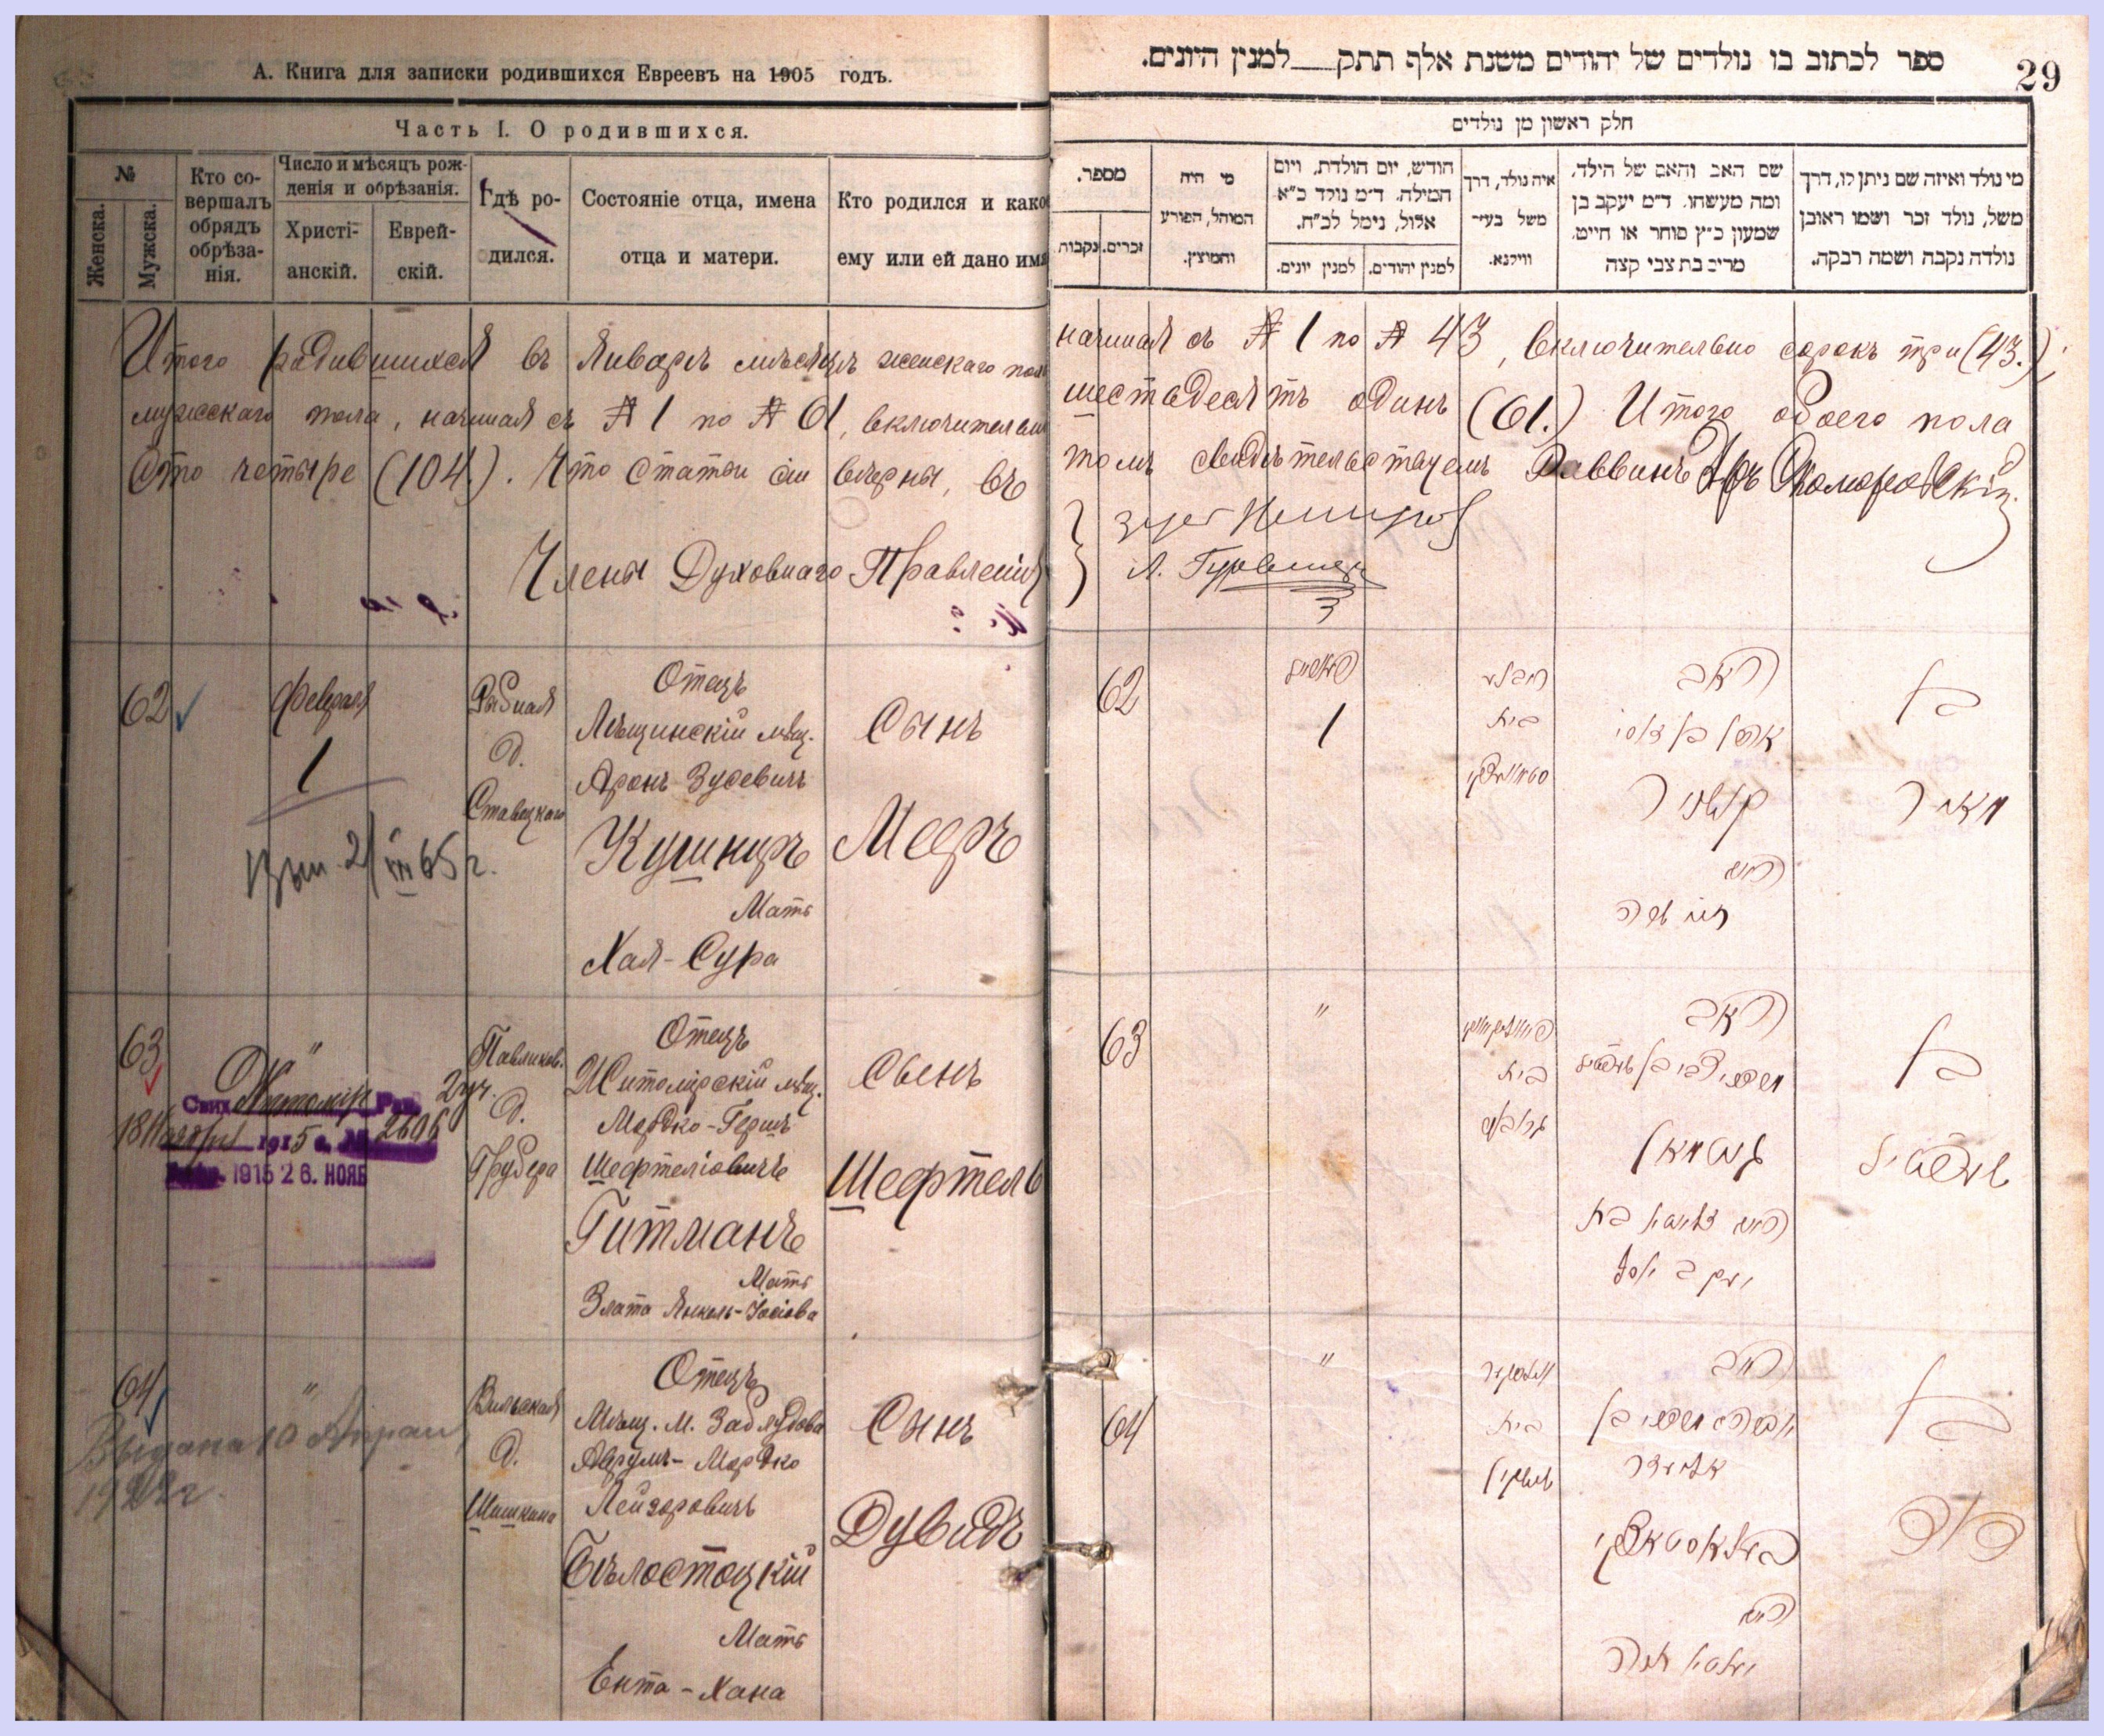 А. Книга для записки родившихся Евреевъ на 1905 годъ.
Часть I. О родившихся.
№
Женска.
Мужска.
Кто со-
вершалъ
обрядъ
обрѣза-
нія.
Число и мѣсяцъ рож-
денія и обрѣзанія.
Христі-
анскій.
Еврей-
скій.
Гдѣ ро-
дился.
Состояніе отца, имена
отца и матери.
Кто родился и како
ему или ей дано имя
ספר לכתוב בו נולדים של יהודים משנת אלף תתק___למנין היונים.
29
חלק ראשון מן נולדים
מספר.
זכרים.
נקבות
מי היה
המוהל, הפורע
והמוצץ.
חודש, יום הולדת, ויום
המילה. ד״מ נולד כ״א
אלול, נימל לכ״ח.
למנין יונים.
למנין יהודים.
איה נולד, דרך
משל בעיר
ווילנא.
שם האב והאם של הילד,
ומה מעשהו. ד״מ יעקב בן
שמעון כ״ץ סוחר או חייט,
מרים בת צבי קצה
מי נולד ואיזה שם ניתן לו, דרך
משל, נולד זכר ושמו ראובן
נולדה נקבה ושמה רבקה.
Итого родившихся въ Январѣ мѣсяцѣ женскаго пола начиная съ № 1 по № 43, включительно сорокъ три (43.);
мужскаго пола, начиная съ № 1 по № 61, включительно шестьдесятъ одинъ (61.) Итого обоего пола
Сто четыре (104.). Что статьи сіи вѣрны, въ томъ свидѣтельствуемъ Раввинъ Скоморовскій.
Члены Духовнаго Правленія
62
Февраля
1
Рыбная
д.
Ставецкаго
Отецъ
мѣщ.
Аронъ Зусевичъ
Кушниръ
Мать
Хая-Сура
Сынъ
Мееръ
65 г.
62
1
האב
קושניר
האם
חיה שרה
בן
מאיר
63
"
Житомир
2 уч.
18 1915 г. № 2606
1915 26. НОЯБ
Павликов.
д.
Грубера
Отецъ
Житомірскій мѣщ.
Мордко-Гершъ
Шефтеліовичъ
Гитманъ
Мать
Злата Янкель-Іосіова
Сынъ
Шефтель
63
"
בית
האב
גוטמאן
האם זלאטא בת
יעקב יוסף
בן
שעפטיל
64
"
Выдана 10
Вильская
д.
Шишкина
Отецъ
Мѣщ. м. Заблудова
Аврумъ-Мордко
Лейзоровичъ
Бѣлостоцкій
Мать
Ента-Хана
Сынъ
Дувидъ
64
"
בית
האב
אברהם מרדכי בן
אליעזר
האם
יענטא חנה
בן
דוד